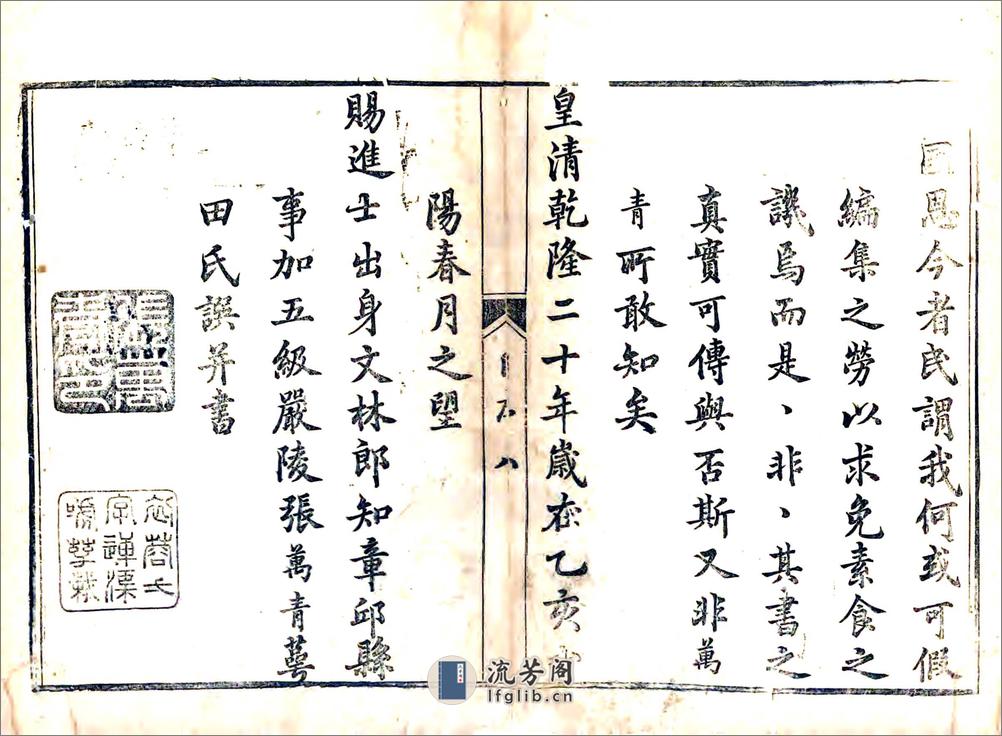 思今者民謂我何或可假
編集之勞以求免素食之
譏焉而是、非、其書之
真實可傳與否斯又非萬
青所敢知矣
皇清乾隆二十年歲在乙亥
陽春月之望
賜進士出身文林郎知章邱縣
事加五級嚴陵張萬青蕚
田氏譔并書
八
流芳阁
lfglib.cn